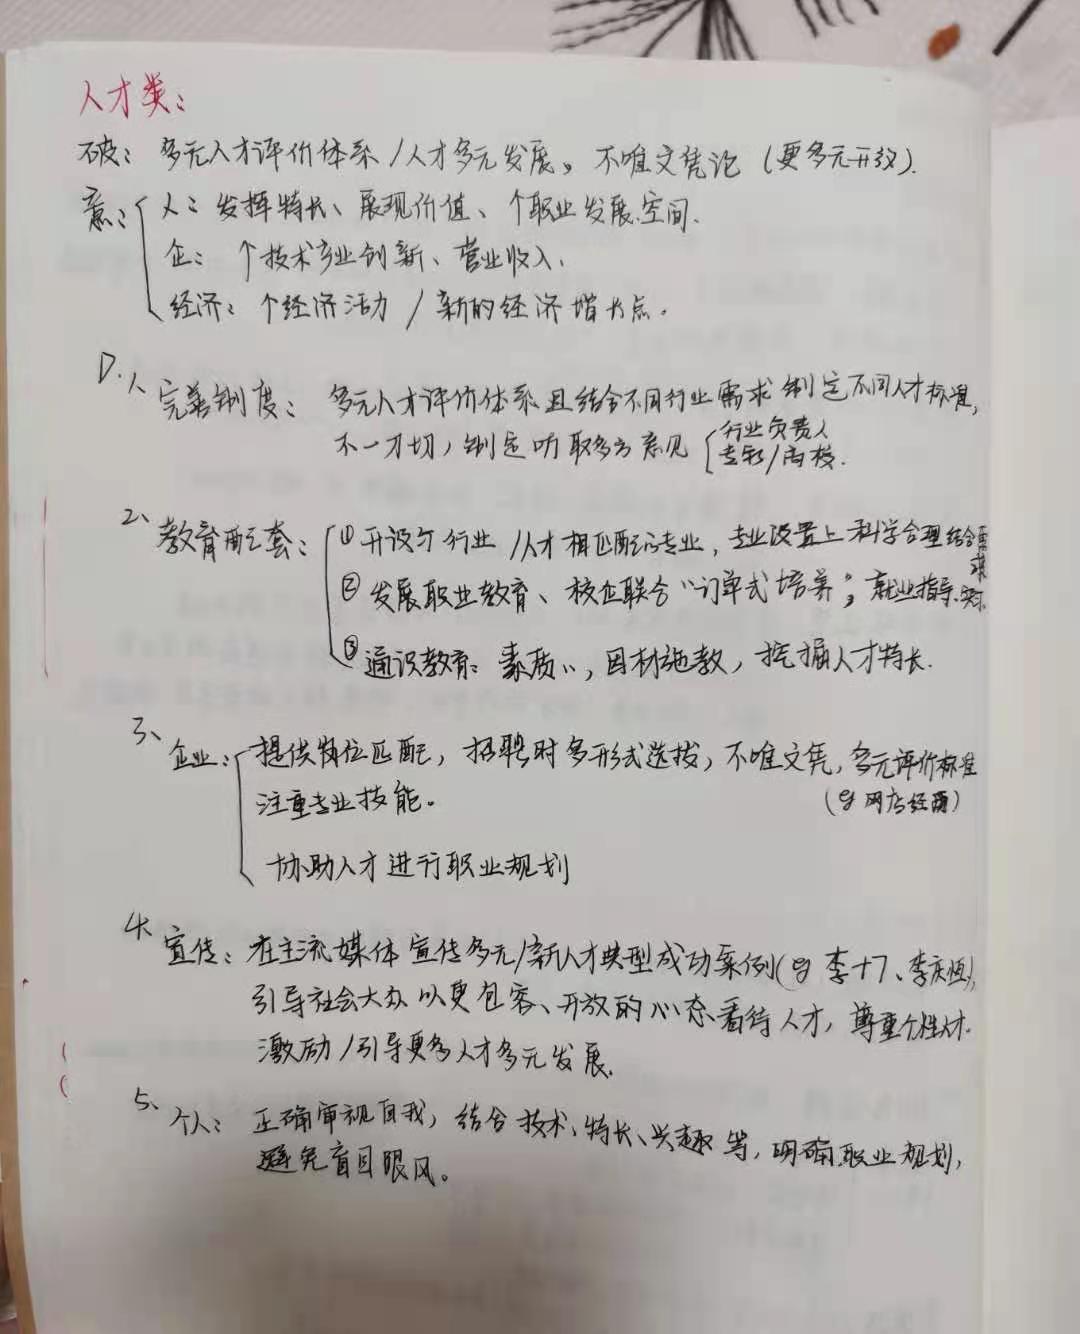 人才类：
破：多元人才评价体系/人才多元发展。不唯文凭论（更多元开放）.
意：人：发挥特长、展现价值、个职业发展空间.
企：个技术产业创新、营业收入.
经济：个经济活力/新的经济增长点.
1、完善制度：多元人才评价体系且结合不同行业需求制定不同人才标准,
不一刀切，制定听取多方意见 行业负责人
专家/高校.
2、教育配套：①开设与行业/人才相匹配的专业，专业设置上科学合理结合需求
②发展职业教育、校企联合“订单式培养”；就业指导.实际
③通识教育：素质〃，因材施教，挖掘人才特长.
3、企业：提供岗位匹配，招聘时多形式选拔，不唯文凭，多元评价标准
注重专业技能。（eg 网店经营）
协助人才进行职业规划
4、宣传：在主流媒体宣传多元/新人才典型成功案例（eg 李十丁、李庆恒）,
引导社会大众以更包容、开放的心态看待人才，尊重个性人才.
激励/引导更多人才多元发展.
5、个人：正确审视自我，结合技术、特长、兴趣等，明确职业规划，
避免盲目跟风。